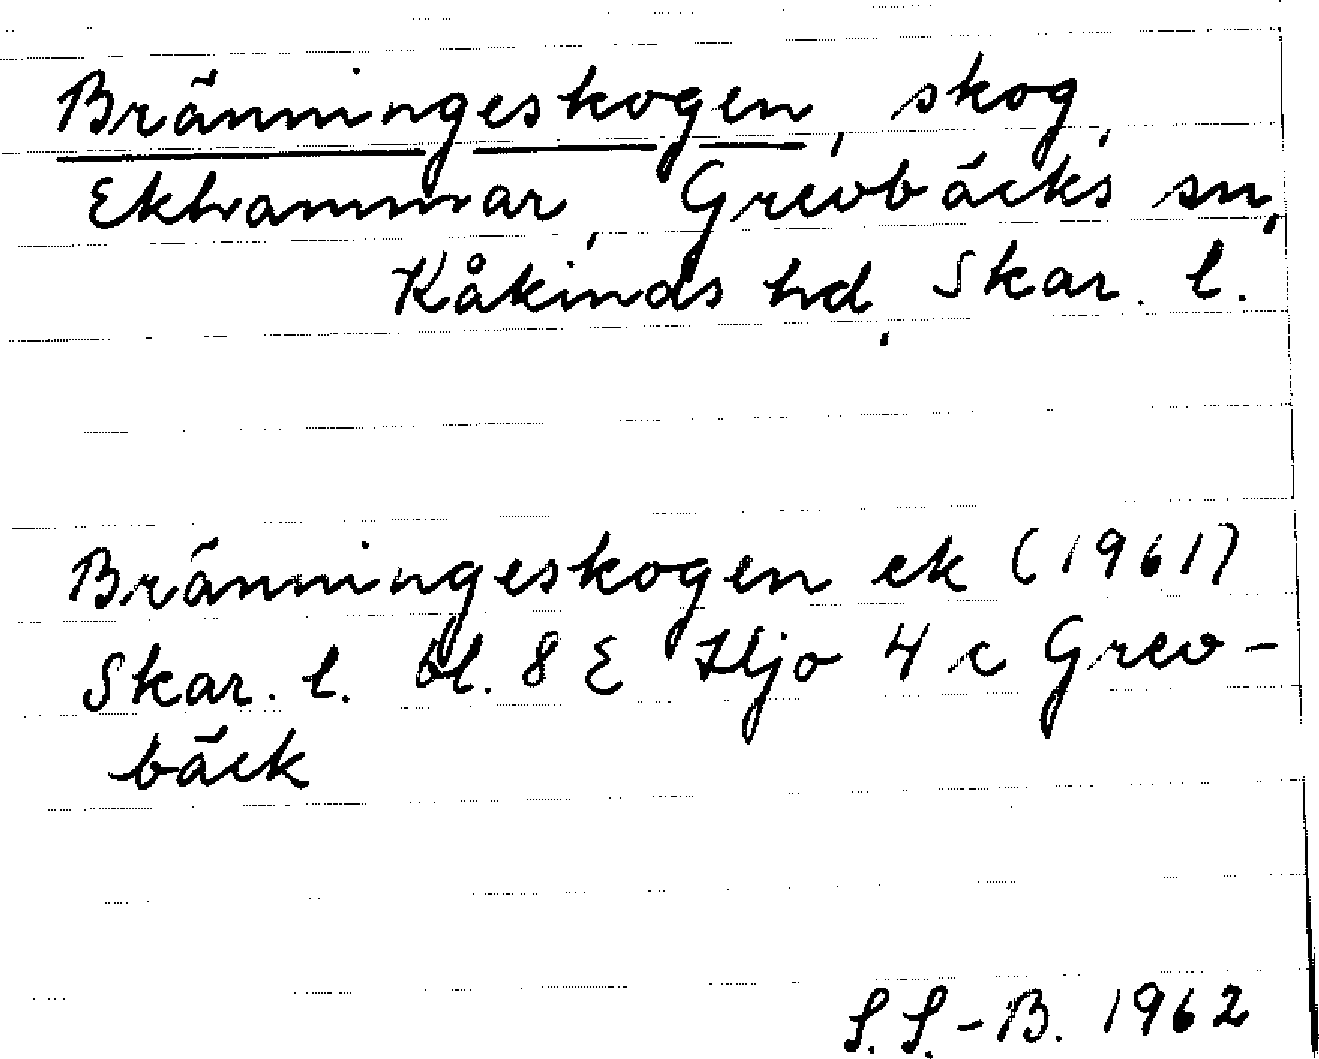 Bränningeskogen, skog,
Ekhammar, Grevbäcks sn,
Kåkinds hd, Skar. l.
Bränningeskogen ek (1961)
Skar. l. bl. 8 E Hjo 4 c Grev-
bäck
S. S.-B. 1962